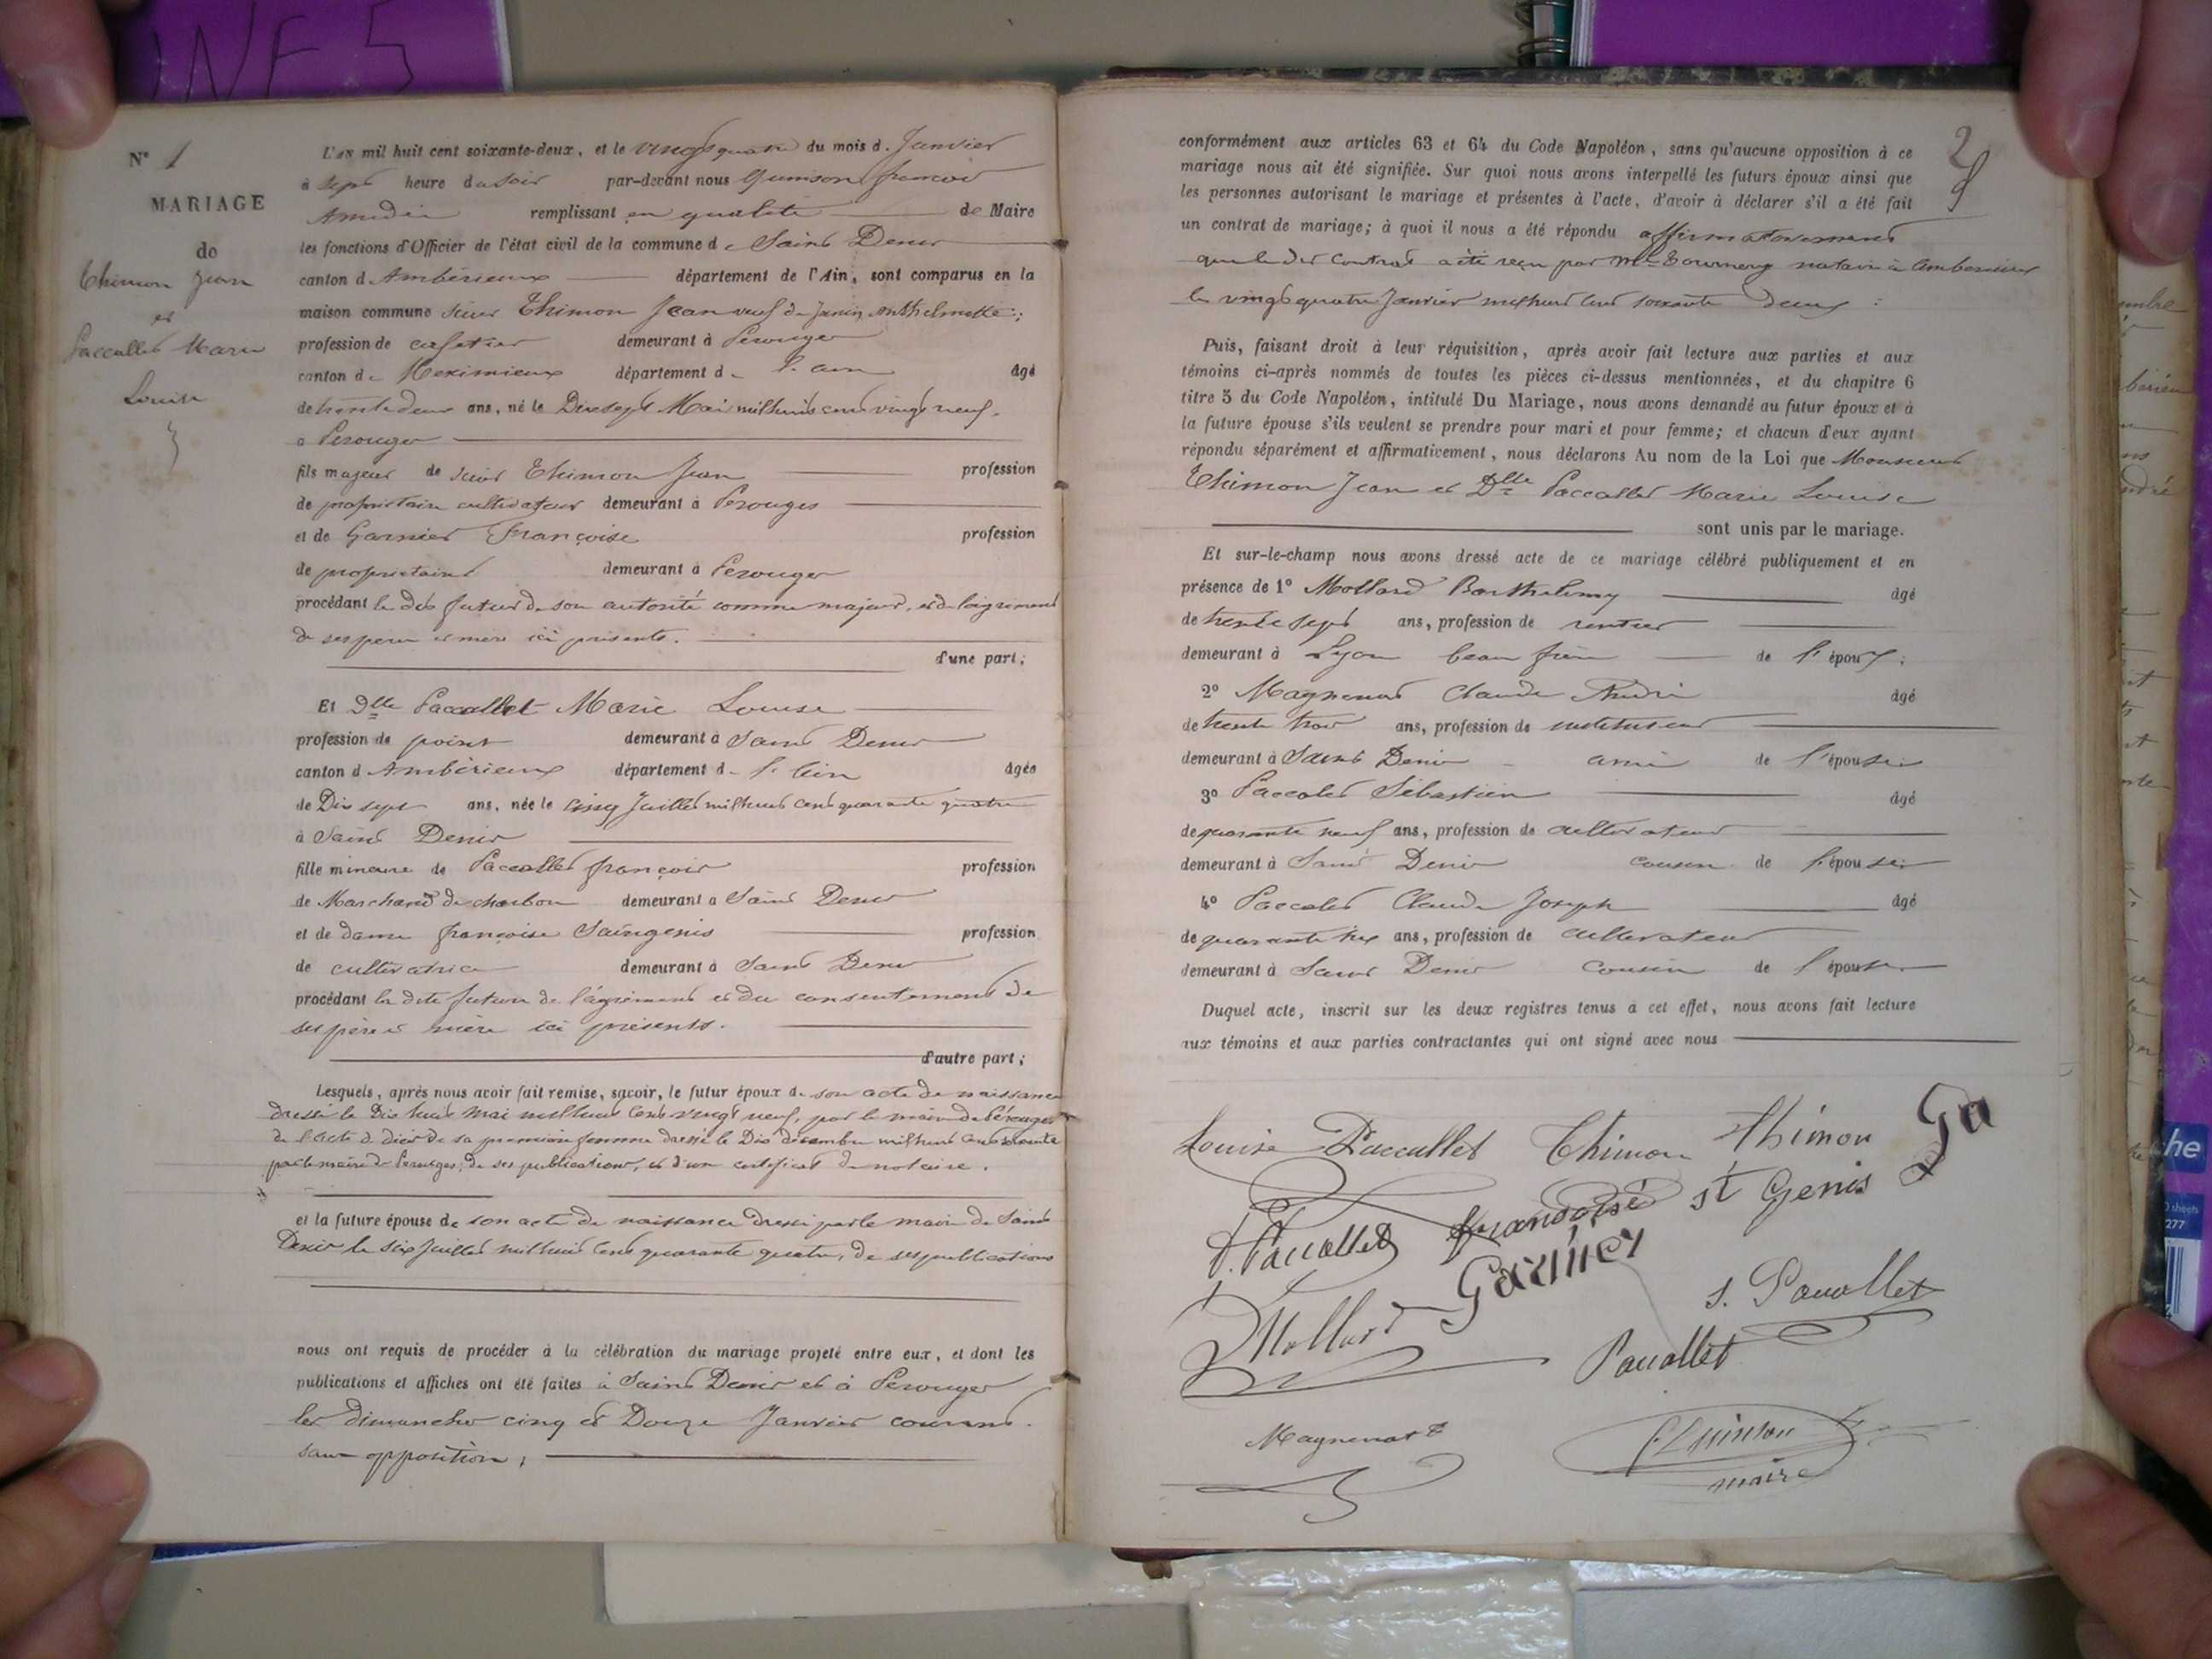 INF 5
N° 1
MARIAGE
de
Thimon Jean
et
Paccallet Marie
Louise
L'an mil huit cent soixante-deux, et le vingt quatre du mois d. Janvier
à sept heure du soir par-devant nous Quinson françois
Amédée remplissant en qualité de Maire
les fonctions d'Officier de l'état civil de la commune de Saint Denis
canton d'Ambérieux département de l'Ain, sont comparus en la
maison commune sieur Thimon Jean veuf de Janin Anthelmette;
profession de cafetier demeurant à Perouges
canton de Meximieux département de l'ain âgé
de trente deux ans, né le Dixsept Mai milhuit cent vingt neuf.
à Perouges
fils majeur de sieur Thimon Jean profession
de propriétaire cultivateur demeurant à Perouges
et de Garnier Françoise profession
de propriétaire demeurant à Perouges
procédant le dit futur de son autorité comme majeur, et de l'agrément
de ses pere et mere ici présents.
d'une part;
Et Dlle Paccallet Marie Louise
profession de point demeurant à Saint Denis
canton d'Ambérieux département de l'Ain âgée
de Dix sept ans, née le cinq Juillet milhuit cent quarante quatre
à Saint Denis
fille mineure de Paccallet françois profession
de Marchand de charbon demeurant à Saint Denis
et de dame françoise Saingenis profession
de cultivatrice demeurant à Saint Denis
procédant la dite future de l'agrément et du consentement de
ses père et mère ici présents.
d'autre part;
Lesquels, après nous avoir fait remise, savoir, le futur époux de son acte de naissance
dressé le Dix huit Mai milhuit cent vingt neuf, par le maire de Pérouges
de l'acte de décès de sa première femme dressé le Dix décembre milhuit cent soixante
par le maire de Perouges, de ses publications, et d'un certificat de notaire.
et la future épouse de son acte de naissance dressé par le maire de Saint
Denis le six Juillet milhuit cent quarante quatre, de ses publications
nous ont requis de procéder à la célébration du mariage projeté entre eux, et dont les
publications et affiches ont été faites à Saint Denis et à Perouges
les dimanches cinq et Douze Janvier courant.
sans opposition;
2
conformément aux articles 63 et 64 du Code Napoléon, sans qu'aucune opposition à ce
mariage nous ait été signifiée. Sur quoi nous avons interpellé les futurs époux ainsi que
les personnes autorisant le mariage et présentes à l'acte, d'avoir à déclarer s'il a été fait
un contrat de mariage; à quoi il nous a été répondu affirmativement
que le dit contrat a été reçu par Me notaire à Amberieux
le vingt quatre Janvier milhuit cent soixante deux:
Puis, faisant droit à leur réquisition, après avoir fait lecture aux parties et aux
témoins ci-après nommés de toutes les pièces ci-dessus mentionnées, et du chapitre 6
titre 5 du Code Napoléon, intitulé Du Mariage, nous avons demandé au futur époux et à
la future épouse s'ils veulent se prendre pour mari et pour femme; et chacun d'eux ayant
répondu séparément et affirmativement, nous déclarons Au nom de la Loi que Monsieur
Thimon Jean et Dlle Paccallet Marie Louise
sont unis par le mariage.
Et sur-le-champ nous avons dressé acte de ce mariage célébré publiquement et en
présence de 1° Mollard Barthelemy âgé
de trente sept ans, profession de rentier
demeurant à Lyon beau frère de l'époux;
2° Magnenat Claude André âgé
de trente trois ans, profession de instituteur
demeurant à Saint Denis ami de l'épouse
3° Paccalet Sébastien âgé
de quarante neuf ans, profession de cultivateur
demeurant à Saint Denis cousin de l'épouse
4° Paccalet Claude Joseph âgé
de quarante six ans, profession de cultivateur
demeurant à Saint Denis cousin de l'épouse
Duquel acte, inscrit sur les deux registres tenus à cet effet, nous avons fait lecture
aux témoins et aux parties contractantes qui ont signé avec nous
Louise Paccallet Thimon Thimon Ga
F. Paccallet françoise st Genis
Garnier
Mollard S. Pacallet
Pacallet
Magnenat
Quinson
maire
che
277